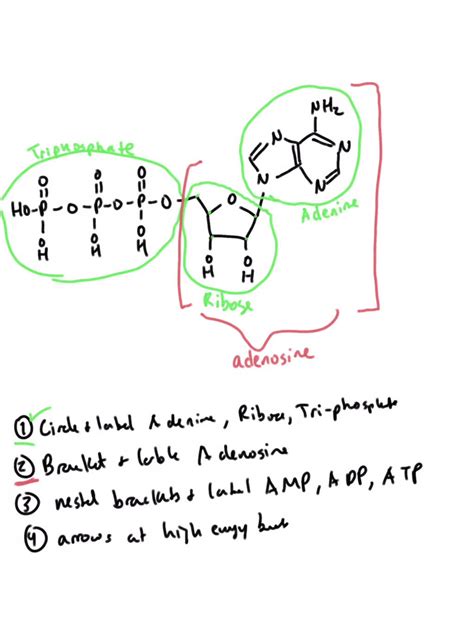 NH₂
Triphosphate
N
N
O
O
O
N
N
HO-P-O-P-O-P-O
O
Adenine
O
O
O
H
H
H
O
O
H
H
Ribose
adenosine
① Circle & label Adenine, Ribose, Tri-phosphate
② Bracket & lable Adenosine
③ nested brackets & label AMP, ADP, ATP
④ arrows at high